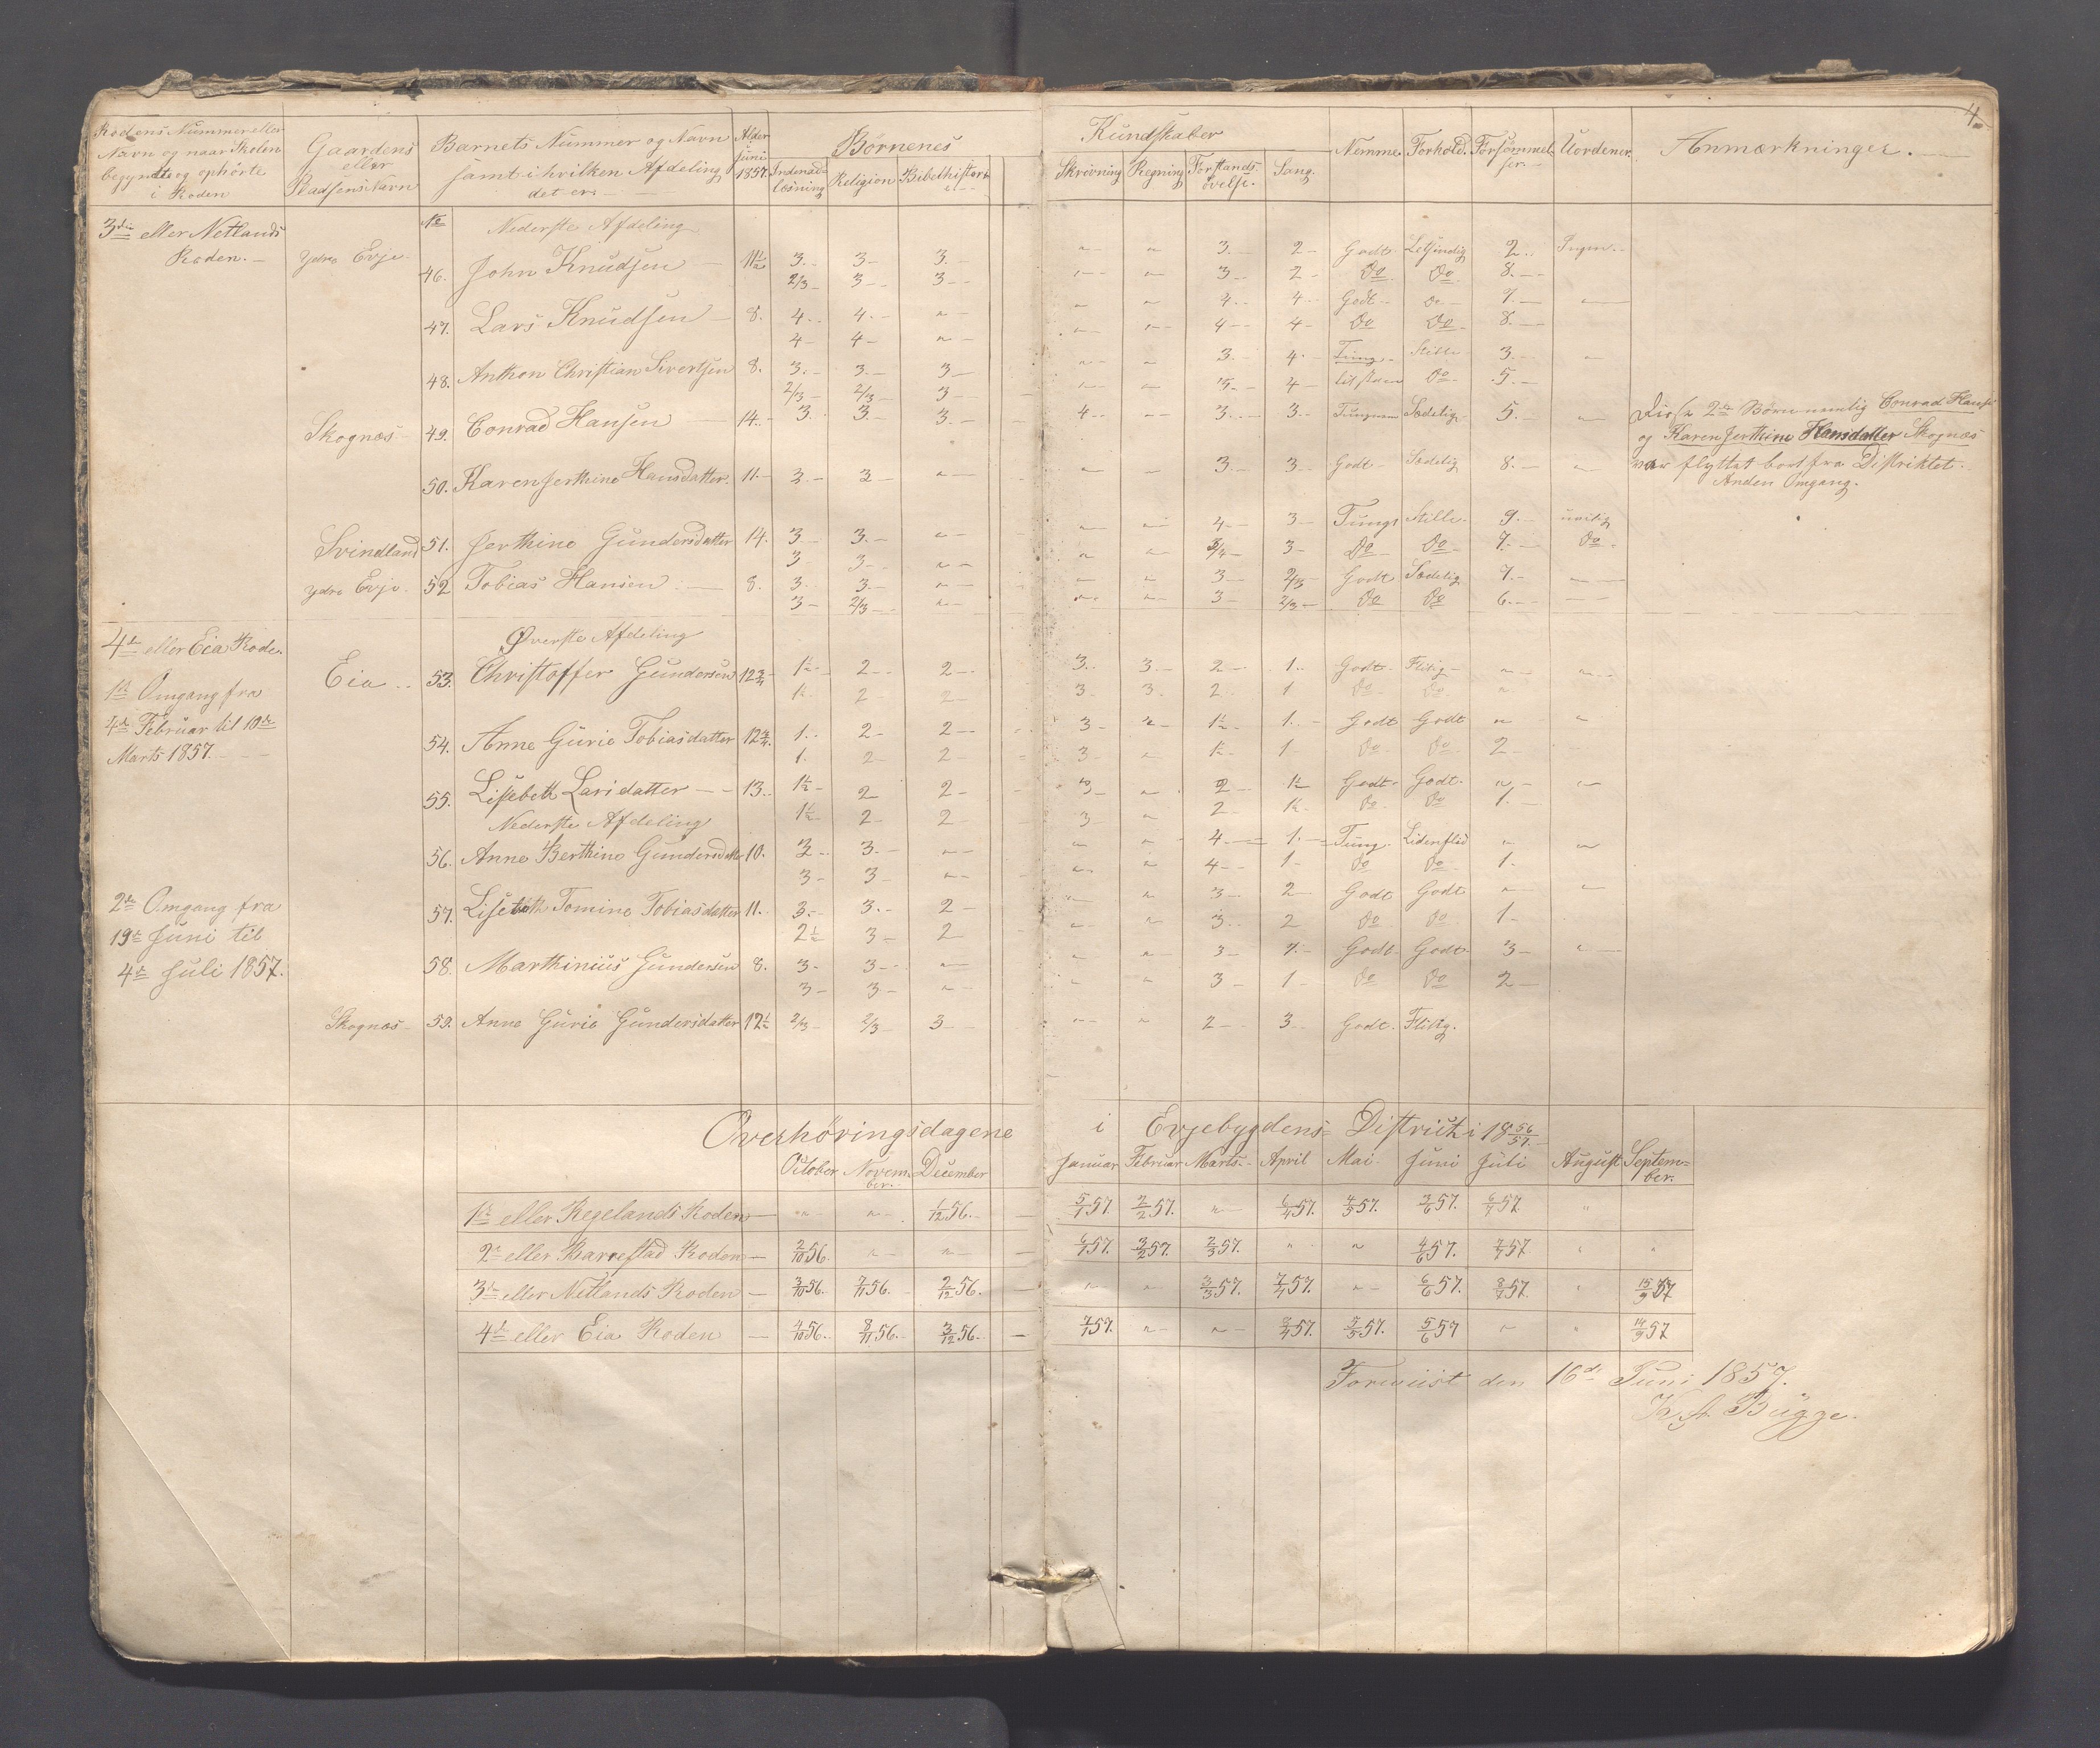 4.
Rodens Nummer eller
Navn og naar Skolen
begyndte og ophörte
i Roden
Gaardens
eller
Pladsens Navn
Barnets Nummer og Navn
samt i hvilken Afdeling
det er.
Alder
i Juni
1857.
Börnenes Kundskaber
Indenad-
læsning Religion Bibelhistorie
Skrivning Regning Forstands-
övelse. Sang.
Nemme Forhold. Forsömmel-
ser. Uordener. Anmærkninger.
3die eller Netlands No Nederste Afdeling
Roden. Ydre Evje. 46. John Knudsen 11½ 3. 3 3. " " 3. 2 Godt Letsindig 2. Ingen.
2/3 3 3 " " 3 2 Do Do 8.
47. Lars Knudsen 8. 4. 4. " " " 4. 4. Godt Do 7. "
4 4 " " " 4 4 Do Do 8.
48. Anthon Christian Sivertsen 8. 3. 3. 3 " " 3. 4. Tung Stille 3. "
2/3 2/3 3 " " 3. 4 Do 5.
Skognæs 49. Conrad Hansen 14. 3. 3. 3. 4. " 3. 3. Tungnem Sædelig 5. "
50. Karen Jerthine Hansdatter. 11. 3. 3 " " " 3. 3. Godt Sædelig 8. "
Disse 2de Børn nemlig Conrad Hansen
og Karen Jerthine Hansdatter Skognæs
var flyttet bort fra Distriktet.
Anden Omgang.
Svindland 51. Jerthine Gundersdatter 14. 3 3. " " " 4 3 Tungt Stille. 9. urolig
3 3 " " " 3/4 3 Do Do 7. Do
Ydre Evje. 52 Tobias Hansen 8. 3. 3. " " " 3 2/3 Godt Sædelig 7.
3 2/3 " " " 3 2/3 Do Do 6.
4de eller Eia Rode. Øverste Afdeling
Eia 53. Christoffer Gundersen 12¾ 1½ 2 2 3. 3. 2 1. Godt Flitig " "
1½ 2 2 3 3. 2 1 Do Do "
1ste Omgang fra
4de Februar til 10de
Marts 1857.
54. Anne Gurie Tobiasdatter 12¾. 1. 2 2 3 " 1½ 1. Godt Godt " "
1. 2 2 3 " 1½ 1 Do Do 2
55. Lisebeth Larsdatter 13. 1½ 2 2 3 " 2 1½ Godt Godt. " "
Nederste Afdeling 1½ 2 2 3 " 2 1½ Do Do 1.
56. Anne Berthine Gundersdatter 10. 3 3. " " " 4 1. Tung. Lidenflid " "
3 3 " " " 4 1 Do Do 1.
2de Omgang fra
19de Juni til
4de Juli 1857.
57. Lisebeth Tomine Tobiasdatter 11. 3. 3. 2 " " 3 2 Godt Godt " "
2½ 3 2 " " 3. 2 Do Do 1
58. Marthinius Gundersen 8. 3. 3 " " " 3 1. Godt. Godt. 3 "
3 3 " " " 3 1 Do Do 2
Skognæs 59. Anne Gurie Gundersdatter 12½ 2/3 2/3 3 " " 2 3 Godt. Flittig.
Overhöringsdagene i Evjebygdens District i 1856/57.
October Novem-
ber. December Januar Februar Marts. April Mai Juni Juli August Septem-
ber.
1ste eller Regelands Roden " " 1/12 56. 5/1 57. 2/2 57. " 6/4 57. 4/5 57. 3/6 57. 6/7 57. "
2den eller Barrestad Roden 2/10 56. " " 6/1 57. 3/2 57. 2/3 57. " " 4/6 57. 7/7 57 " "
3die eller Netlands Roden 3/10 56. 7/11 56. 2/12 56. " " 3/3 57. 7/4 57. " 6/6 57. 8/7 57. " 15/9 57
4de eller Eia Roden 4/10 56. 8/11 56. 3/12 56. 7/1 57. " " 8/4 57. 5/5 57. 5/6 57 " " 14/9 57
Foreviist den 16de Juni 1857.
Bugge.